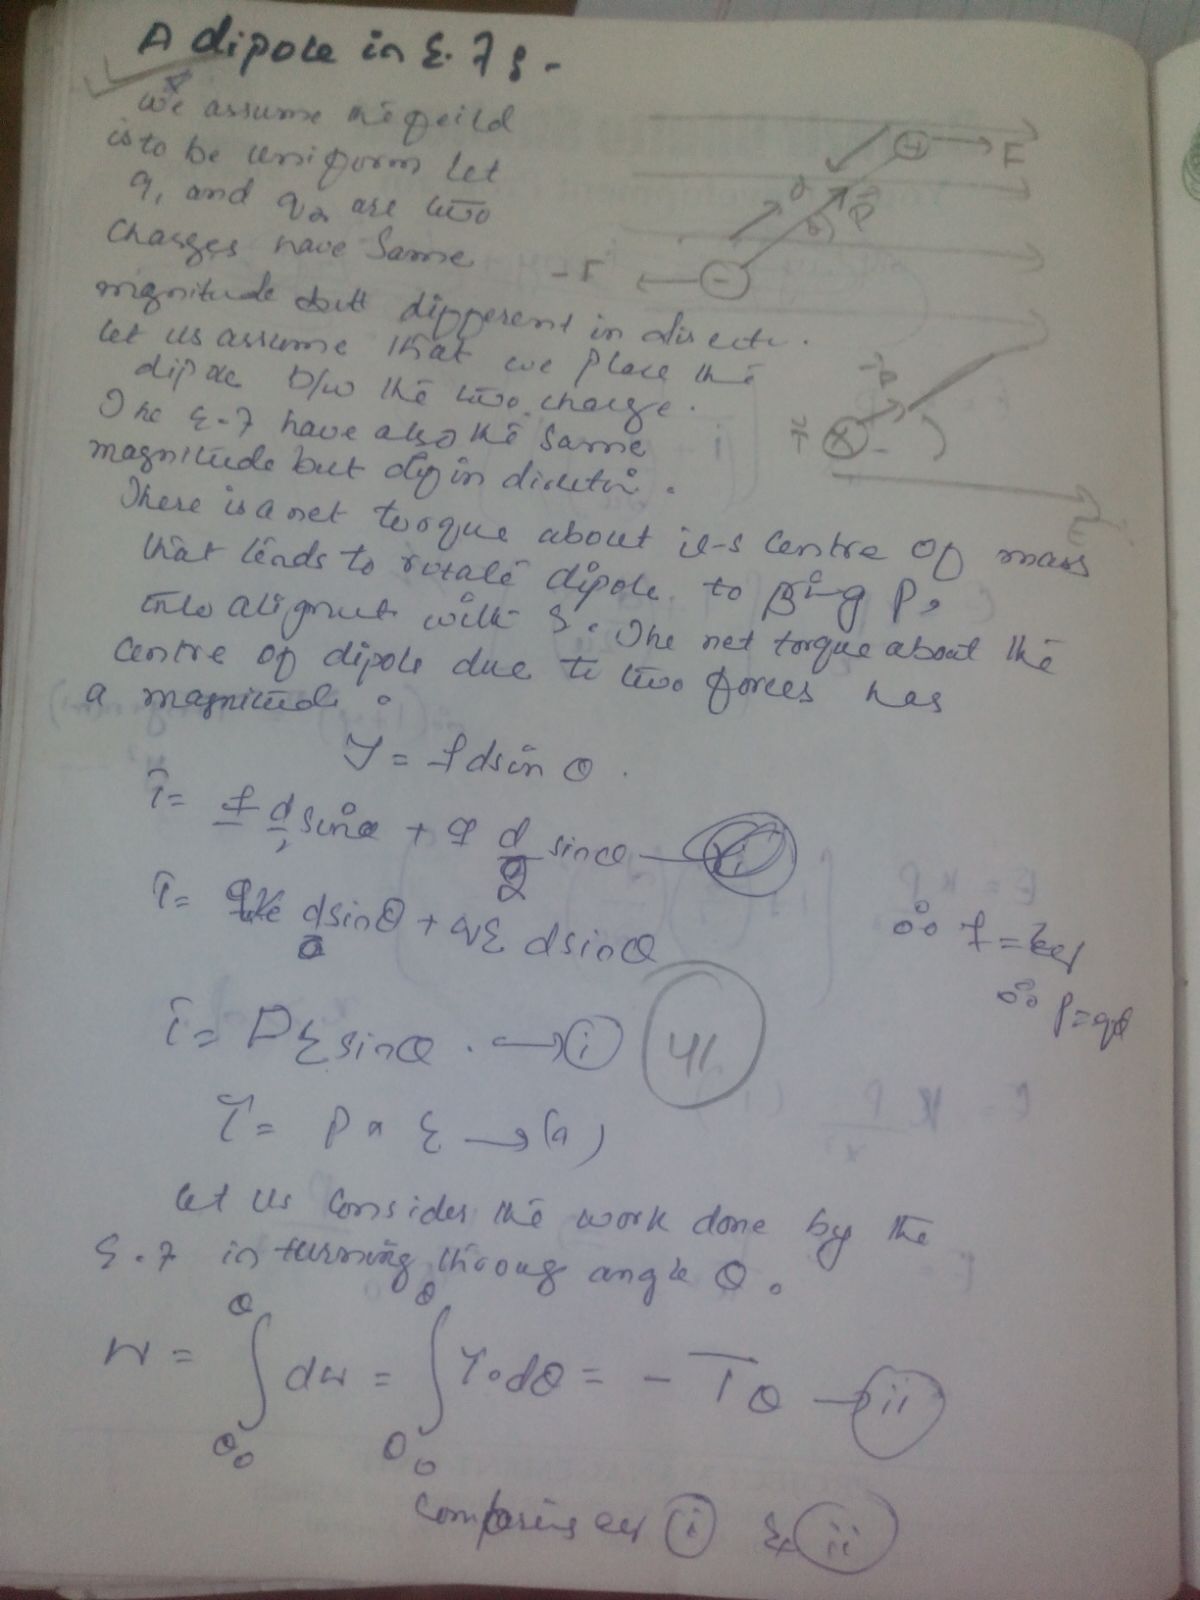 A dipole in E.F S -
We assume the feild
is to be Uniform let
q1 and q2 are two
Charges have Same
magnitude but different in direct.
let us assume that we place the
dipole b/w the two charge.
The E.F have also the Same
magnitude but dif in direction.
There is a net torque about it-s Centre of mass
that tends to rotate dipole to bring P,
into alignmet with E. The net torque about the
Centre of dipole due to two forces has
a magnitude:
F
P
-F
-
P
-
E
T = f d sin θ.
T = f d sin θ + q d/2 sin θ → i
T = d sin θ + qE d sin θ
∵ p = qd
T = PE sin θ. → (i)
41
T = P × E → (a)
let us Consider the work done by the
E.F in turning throug angle θ.
W = ∫ dw = ∫ T.dθ = - T θ → ii
θ θ
θo θo
Comparing eq (i) & (ii)